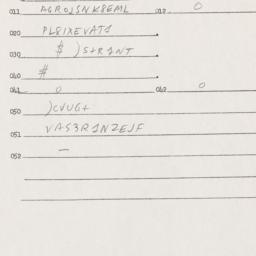 011 AGROJSNK8EML 012 0
020 PL8IXEVAT1
030 $ )S+R1NT
040 #
041 0 042 0
050 )CVUG+
051 VAS3R1NZEJF
052 —